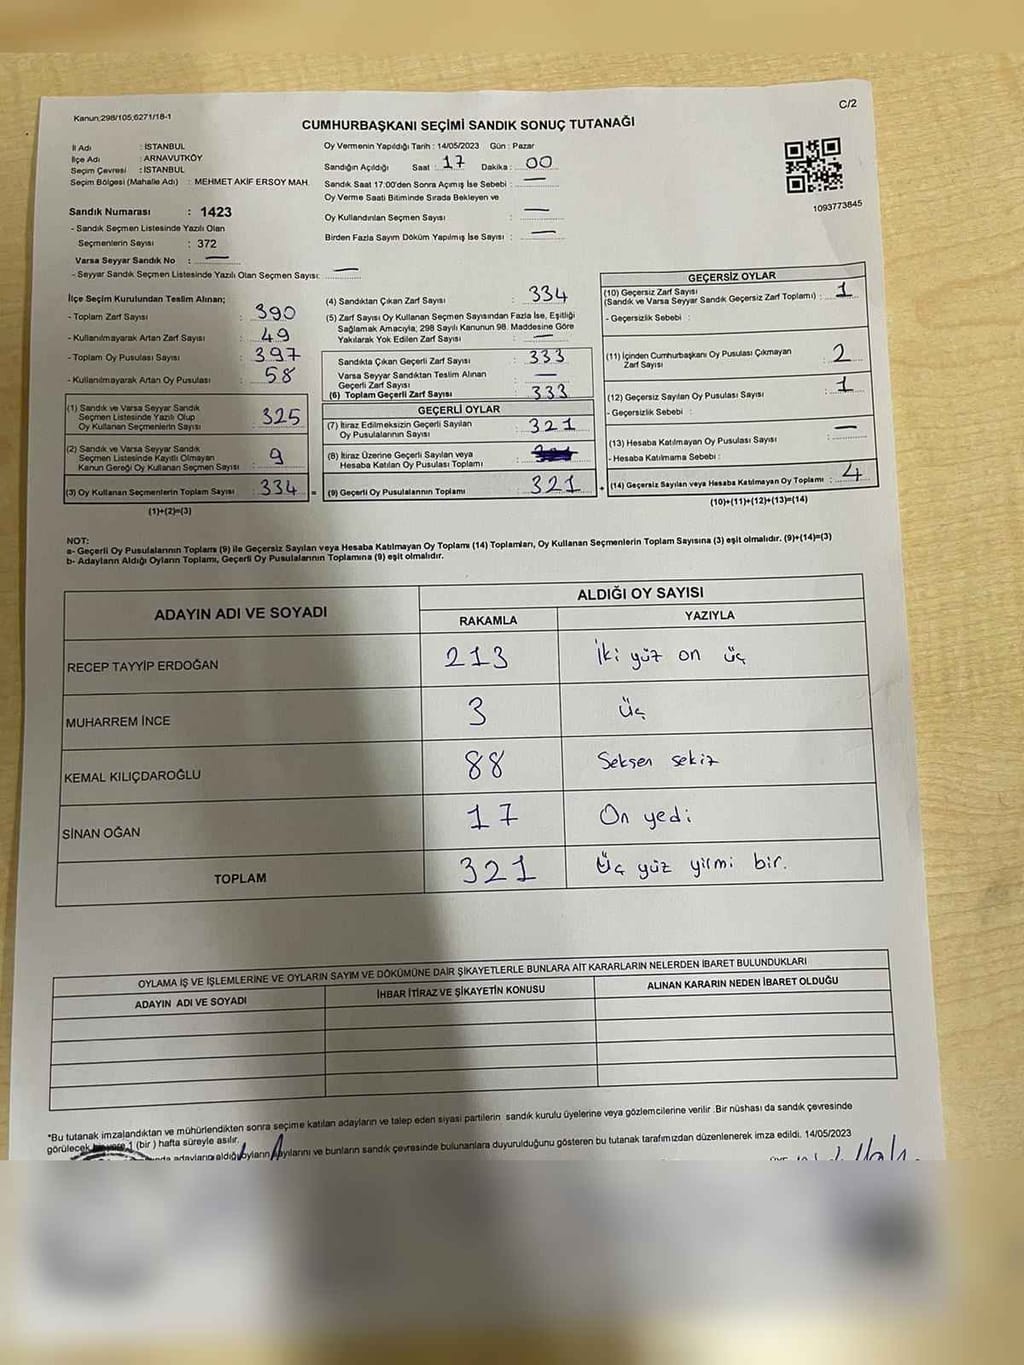 Kanun;298/105;6271/18-1
C/2
CUMHURBAŞKANI SEÇİMİ SANDIK SONUÇ TUTANAĞI
İl Adı : İSTANBUL
İlçe Adı : ARNAVUTKÖY
Seçim Çevresi : İSTANBUL
Seçim Bölgesi (Mahalle Adı) : MEHMET AKİF ERSOY MAH.
Sandık Numarası : 1423
- Sandık Seçmen Listesinde Yazılı Olan
Seçmenlerin Sayısı : 372
Varsa Seyyar Sandık No : —
- Seyyar Sandık Seçmen Listesinde Yazılı Olan Seçmen Sayısı: —
Oy Vermenin Yapıldığı Tarih : 14/05/2023 Gün : Pazar
Sandığın Açıldığı Saat : 17 Dakika : 00
Sandık Saat 17:00'den Sonra Açımış İse Sebebi : —
Oy Verme Saati Bitiminde Sırada Bekleyen ve
Oy Kullandırılan Seçmen Sayısı : —
Birden Fazla Sayım Döküm Yapılmış İse Sayısı : —
1093773845
İlçe Seçim Kurulundan Teslim Alınan;
- Toplam Zarf Sayısı : 390
- Kullanılmayarak Artan Zarf Sayısı : 49
- Toplam Oy Pusulası Sayısı : 397
- Kullanılmayarak Artan Oy Pusulası : 58
(1) Sandık ve Varsa Seyyar Sandık
Seçmen Listesinde Yazılı Olup
Oy Kullanan Seçmenlerin Sayısı : 325
(2) Sandık ve Varsa Seyyar Sandık
Seçmen Listesinde Kayıtlı Olmayan
Kanun Gereği Oy Kullanan Seçmen Sayısı : 9
(3) Oy Kullanan Seçmenlerin Toplam Sayısı : 334 =
(1)+(2)=(3)
(4) Sandıktan Çıkan Zarf Sayısı : 334
(5) Zarf Sayısı Oy Kullanan Seçmen Sayısından Fazla İse, Eşitliği
Sağlamak Amacıyla; 298 Sayılı Kanunun 98. Maddesine Göre
Yakılarak Yok Edilen Zarf Sayısı : —
Sandıkta Çıkan Geçerli Zarf Sayısı : 333
Varsa Seyyar Sandıktan Teslim Alınan
Geçerli Zarf Sayısı : —
(6) Toplam Geçerli Zarf Sayısı : 333
GEÇERLİ OYLAR
(7) İtiraz Edilmeksizin Geçerli Sayılan
Oy Pusulalarının Sayısı : 321
(8) İtiraz Üzerine Geçerli Sayılan veya
Hesaba Katılan Oy Pusulası Toplamı :
(9) Geçerli Oy Pusulalarının Toplamı : 321 +
GEÇERSİZ OYLAR
(10) Geçersiz Zarf Sayısı
(Sandık ve Varsa Seyyar Sandık Geçersiz Zarf Toplamı) : 1
- Geçersizlik Sebebi :
(11) İçinden Cumhurbaşkanı Oy Pusulası Çıkmayan
Zarf Sayısı : 2
(12) Geçersiz Sayılan Oy Pusulası Sayısı : 1
- Geçersizlik Sebebi :
(13) Hesaba Katılmayan Oy Pusulası Sayısı : —
- Hesaba Katılmama Sebebi :
(14) Geçersiz Sayılan veya Hesaba Katılmayan Oy Toplamı : 4
(10)+(11)+(12)+(13)=(14)
NOT:
a- Geçerli Oy Pusulalarının Toplamı (9) ile Geçersiz Sayılan veya Hesaba Katılmayan Oy Toplamı (14) Toplamları, Oy Kullanan Seçmenlerin Toplam Sayısına (3) eşit olmalıdır. (9)+(14)=(3)
b- Adayların Aldığı Oyların Toplamı, Geçerli Oy Pusulalarının Toplamına (9) eşit olmalıdır.
ADAYIN ADI VE SOYADI
ALDIĞI OY SAYISI
RAKAMLA YAZIYLA
RECEP TAYYİP ERDOĞAN 213 İki yüz on üç
MUHARREM İNCE 3 Üç
KEMAL KILIÇDAROĞLU 88 Seksen sekiz
SİNAN OĞAN 17 On yedi
TOPLAM 321 Üç yüz yirmi bir.
OYLAMA İŞ VE İŞLEMLERİNE VE OYLARIN SAYIM VE DÖKÜMÜNE DAİR ŞİKAYETLERLE BUNLARA AİT KARARLARIN NELERDEN İBARET BULUNDUKLARI
ADAYIN ADI VE SOYADI İHBAR İTİRAZ VE ŞİKAYETİN KONUSU ALINAN KARARIN NEDEN İBARET OLDUĞU
*Bu tutanak imzalandıktan ve mühürlendikten sonra seçime katılan adayların ve talep eden siyasi partilerin sandık kurulu üyelerine veya gözlemcilerine verilir .Bir nüshası da sandık çevresinde
görülecek bir yere 1 (bir ) hafta süreyle asılır.
adayların aldığı oyların sayılarını ve bunların sandık çevresinde bulunanlara duyurulduğunu gösteren bu tutanak tarafımızdan düzenlenerek imza edildi. 14/05/2023